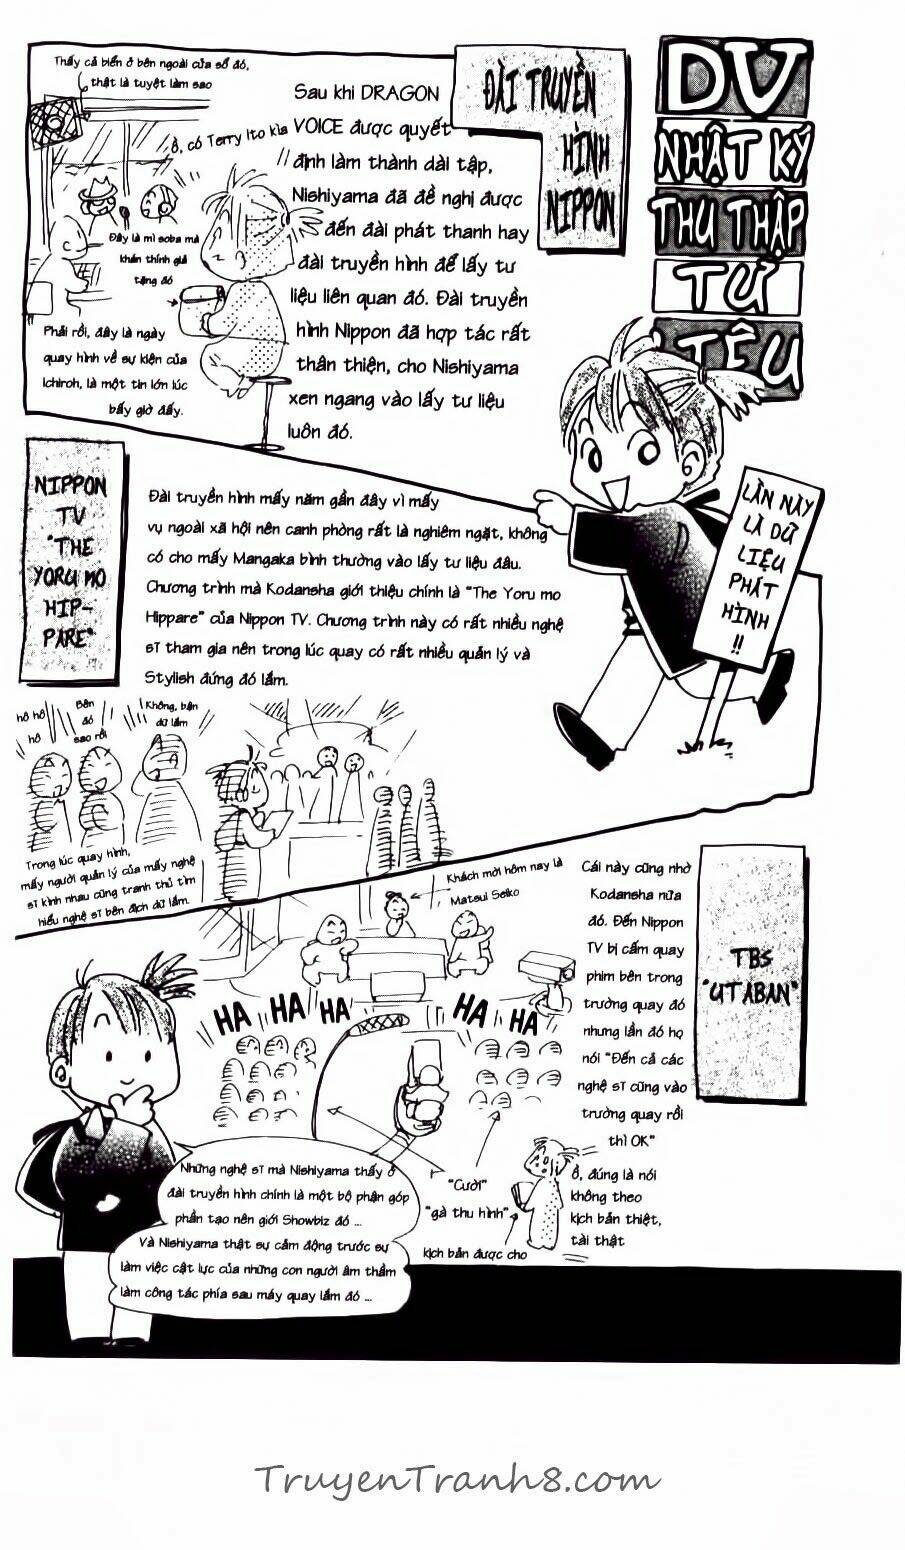 DV
NHẬT KÝ
THU THẬP
TƯ
LIỆU
ĐÀI TRUYỀN
HÌNH
NIPPON
Thấy cả biển ở bên ngoài cửa sổ đó,
thật là tuyệt làm sao
Ồ, có Terry Ito kìa
Đây là mì soba mà
khán thính giả
tặng đó
Phải rồi, đây là ngày
quay hình về sự kiện của
Ichiroh, là một tin lớn lúc
bấy giờ đấy.
Sau khi DRAGON
VOICE được quyết
định làm thành dài tập,
Nishiyama đã đề nghị được
đến đài phát thanh hay
đài truyền hình để lấy tư
liệu liên quan đó. Đài truyền
hình Nippon đã hợp tác rất
thân thiện, cho Nishiyama
xen ngang vào lấy tư liệu
luôn đó.
LẦN NÀY
LÀ DỮ
LIỆU
PHÁT
HÌNH
!!
NIPPON
TV
"THE
YORU MO
HIP-
PARE"
Đài truyền hình mấy năm gần đây vì mấy
vụ ngoài xã hội nên canh phòng rất là nghiêm ngặt, không
có cho mấy Mangaka bình thường vào lấy tư liệu đâu.
Chương trình mà Kodansha giới thiệu chính là "The Yoru mo
Hippare" của Nippon TV. Chương trình này có rất nhiều nghệ
sĩ tham gia nên trong lúc quay có rất nhiều quản lý và
Stylish đứng đó lắm.
hô hô
hô
Bên
đó
sao rồi
Không, bận
dữ lắm
Trong lúc quay hình,
mấy người quản lý của mấy nghệ
sĩ kình nhau cũng tranh thủ tìm
hiểu nghệ sĩ bên địch dữ lắm.
TBS
"UTABAN"
Khách mời hôm nay là
Matsui Seiko
Cái này cũng nhờ
Kodansha nữa
đó. Đến Nippon
TV bị cấm quay
phim bên trong
trường quay đó
nhưng lần đó họ
nói "Đến cả các
nghệ sĩ cũng vào
trường quay rồi
thì OK"
HA HA HA HA HA
"Cười"
"gà thu hình"
kịch bản được cho
Ồ, đúng là nói
không theo
kịch bản thiệt,
tài thật
Những nghệ sĩ mà Nishiyama thấy ở
đài truyền hình chính là một bộ phận góp
phần tạo nên giới Showbiz đó ...
Và Nishiyama thật sự cảm động trước sự
làm việc cật lực của những con người âm thầm
làm công tác phía sau máy quay lắm đó ...
TruyenTranh8.com